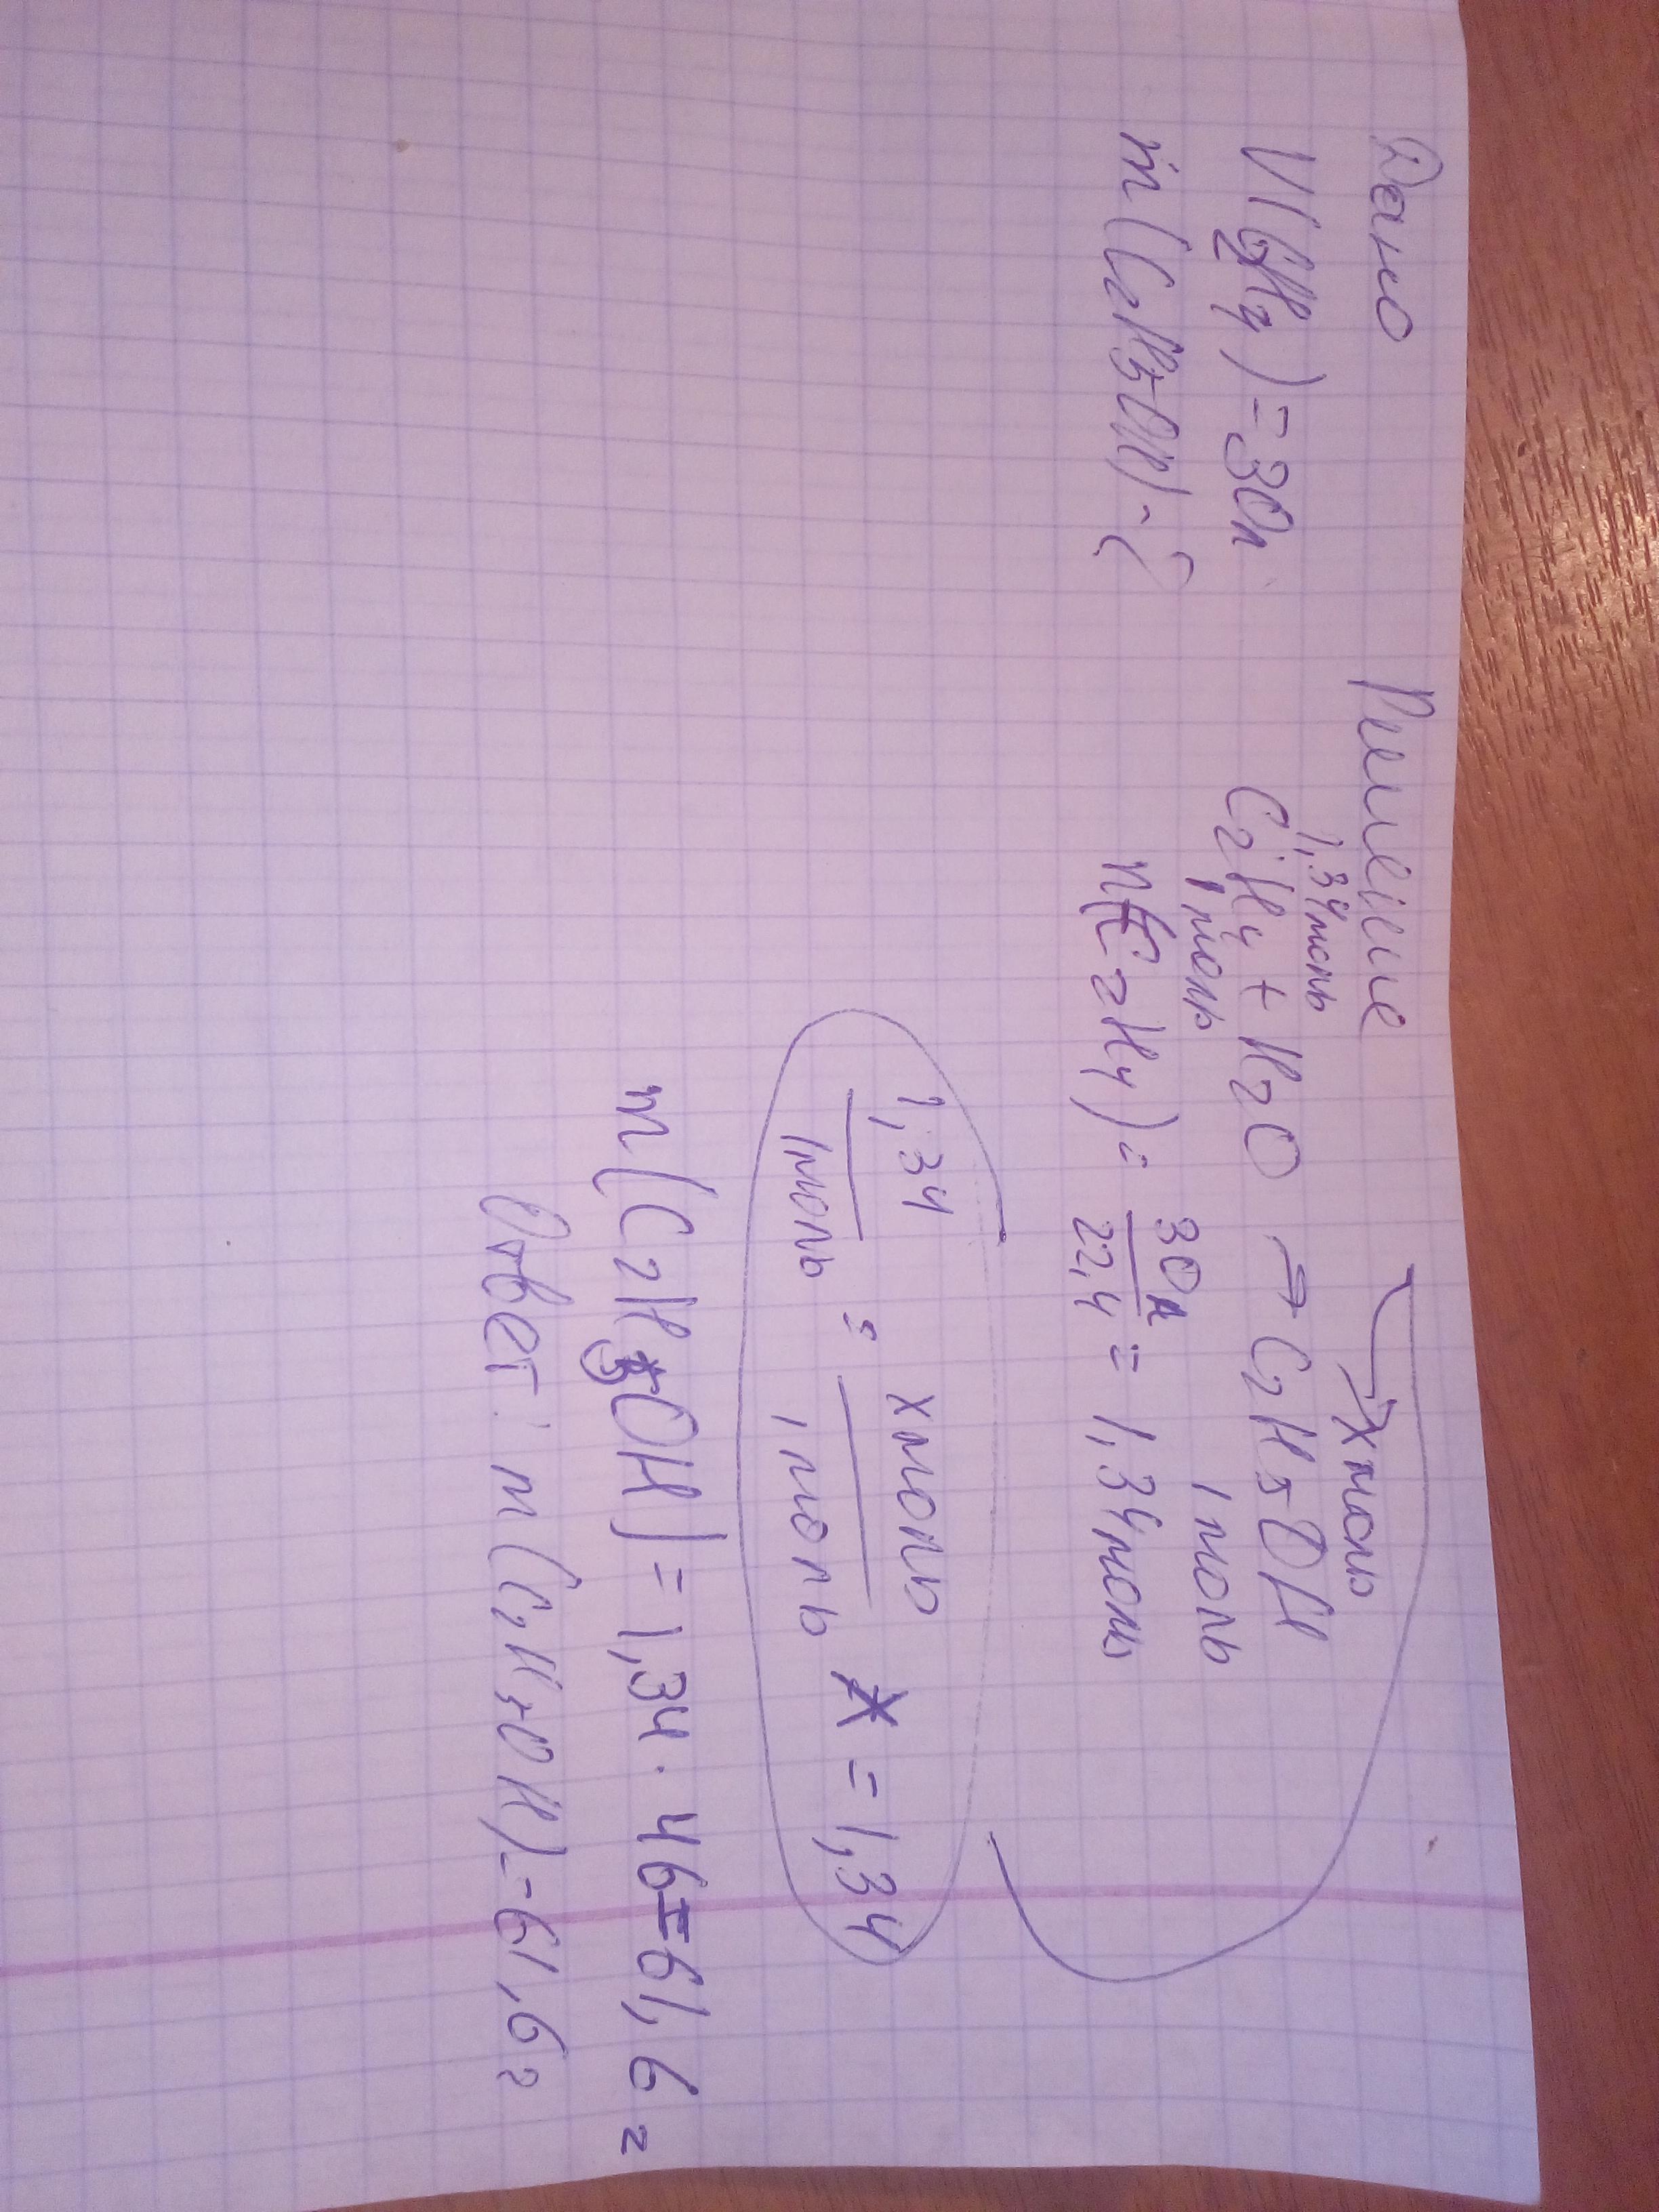 Дано
V(C2H4)=30л
m(C2H5OH)-?
Решение
1,34моль
xмоль
C2H4 + H2O → C2H5OH
1моль
1 моль
n(C2H4) = 30л/22,4 = 1,34моль
1,34/1моль = xмоль/1моль x = 1,34
m(C2H5OH)=1,34·46=61,6г
Ответ: m(C2H5OH)=61,6г